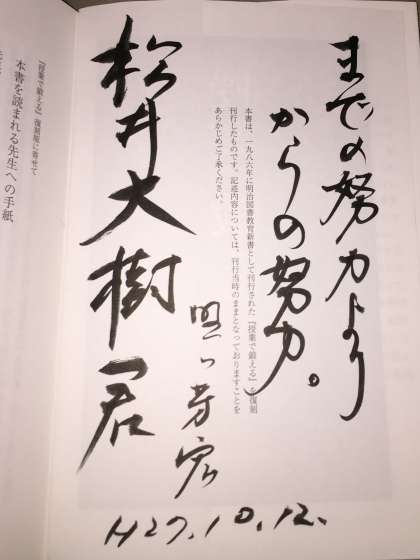 までの努力より
からの努力。
本書は、一九八六年に明治図書教育新書として刊行された『授業で鍛える』を復刻
刊行したものです。記述内容については、刊行当時のままとなっておりますことを
あらかじめご了承ください。
松井大樹君
野口芳宏
H27.10.12.
『授業で鍛える』復刻版に寄せて
本書を読まれる先生への手紙